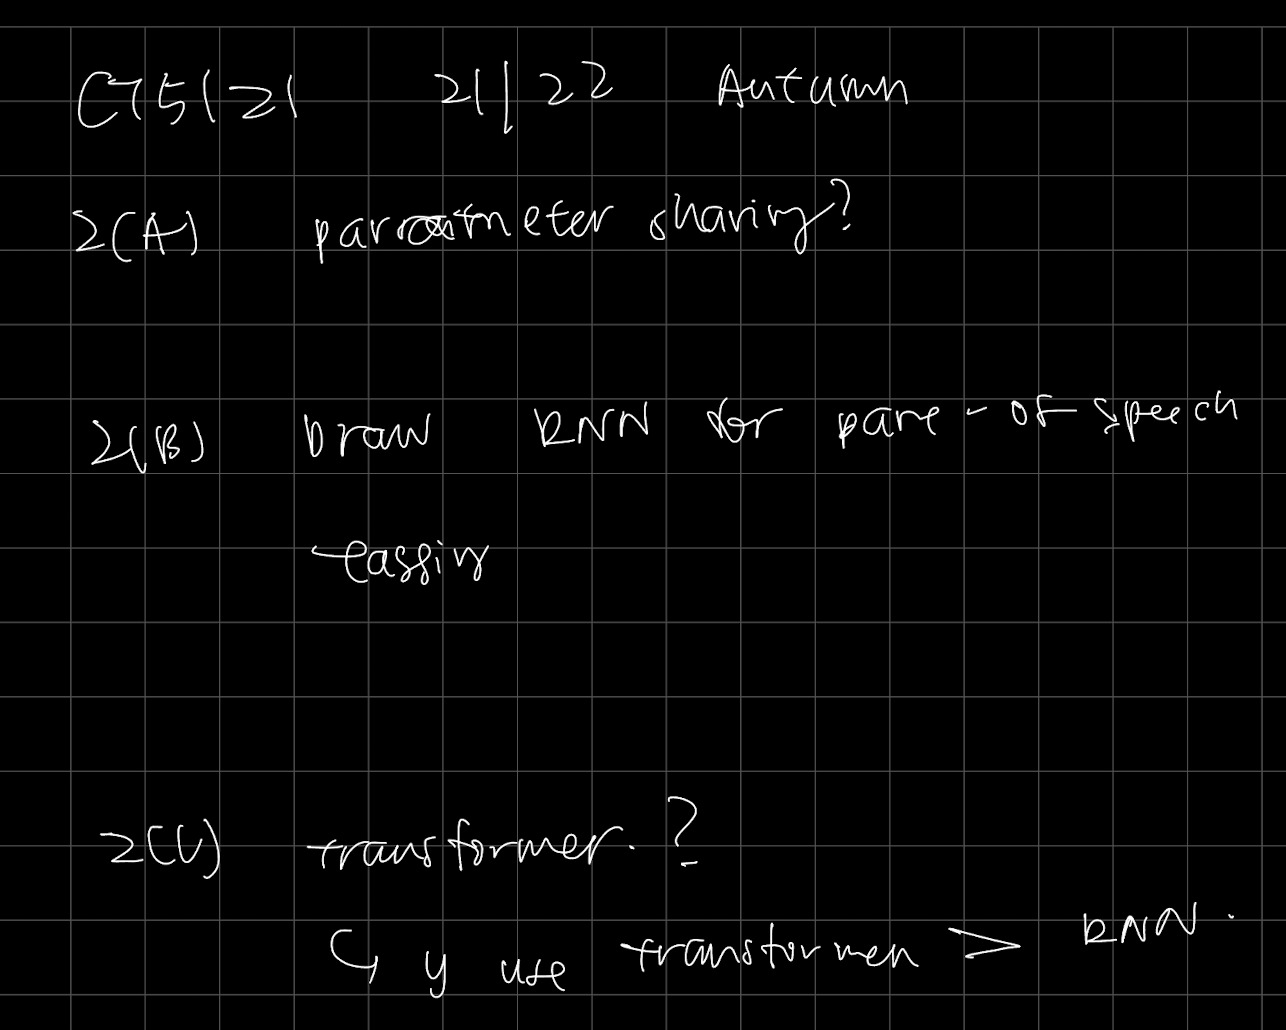 CT5121 21/22 Autumn
2(A) parameter sharing?
2(B) Draw RNN for pare-of speech
2(C) transformer.?
↳ y use transformer > RNN.